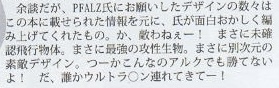 余談だが、PFALZ氏にお願いしたデザインの数々は
この本に載せられた情報を元に、氏が面白おかしく編
み上げてくれたもの。か、敵わねぇー！　まさに未確
認飛行物体。まさに最強の攻性生物。まさに別次元の
素敵デザイン。つーかこんなのアルクでも勝てない
よ！　だ、誰かウルトラ○ン連れてきてー！